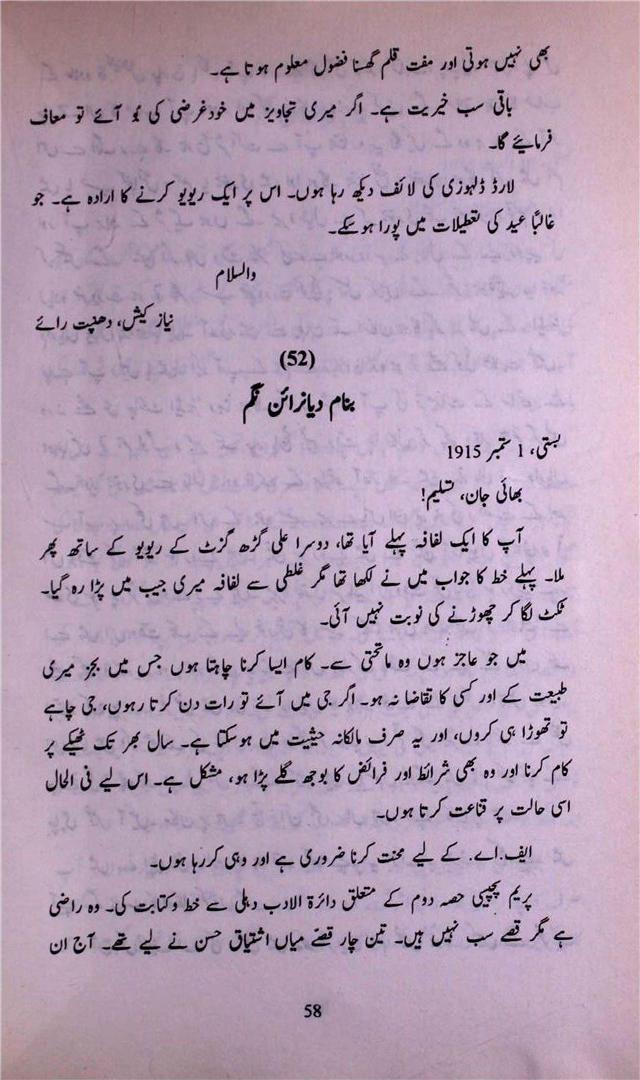 بھی نہیں ہوتی اور مفت قلم گھسنا فضول معلوم ہوتا ہے۔
باقی سب خیریت ہے۔ اگر میری تجاویز میں خودغرضی کی بُو آئے تو معاف
فرمایئے گا۔
لارڈ ڈلہوزی کی لائف دیکھ رہا ہوں۔ اس پر ایک ریویو کرنے کا ارادہ ہے۔ جو
غالباً عید کی تعطیلات میں پورا ہوسکے۔
والسلام
نیاز کیش، دھنپت رائے
(52)
بنام دیانرائن نگم
بستی، 1 ستمبر 1915
بھائی جان، تسلیم!
آپ کا ایک لفافہ پہلے آیا تھا، دوسرا علی گڑھ گزٹ کے ریویو کے ساتھ پھر
ملا۔ پہلے خط کا جواب میں نے لکھا تھا مگر غلطی سے لفافہ میری جیب میں پڑا رہ گیا۔
ٹکٹ لگا کر چھوڑنے کی نوبت نہیں آئی۔
میں جو عاجز ہوں وہ ماتحتی سے۔ کام ایسا کرنا چاہتا ہوں جس میں بجز میری
طبیعت کے اور کسی کا تقاضا نہ ہو۔ اگر جی میں آئے تو رات دن کرتا رہوں، جی چاہے
تو تھوڑا ہی کروں، اور یہ صرف مالکانہ حیثیت میں ہوسکتا ہے۔ سال بھر تک ٹھیکے پر
کام کرنا اور وہ بھی شرائط اور فرائض کا بوجھ گلے پڑا ہو، مشکل ہے۔ اس لیے فی الحال
اسی حالت پر قناعت کرتا ہوں۔
ایف.اے. کے لیے محنت کرنا ضروری ہے اور وہی کررہا ہوں۔
پریم پچیسی حصہ دوم کے متعلق دائرۃ الادب دہلی سے خط و کتابت کی۔ وہ راضی
ہے مگر قصے سب نہیں ہیں۔ تین چار قصّے میاں اشتیاق حسن نے لیے تھے۔ آج ان
58